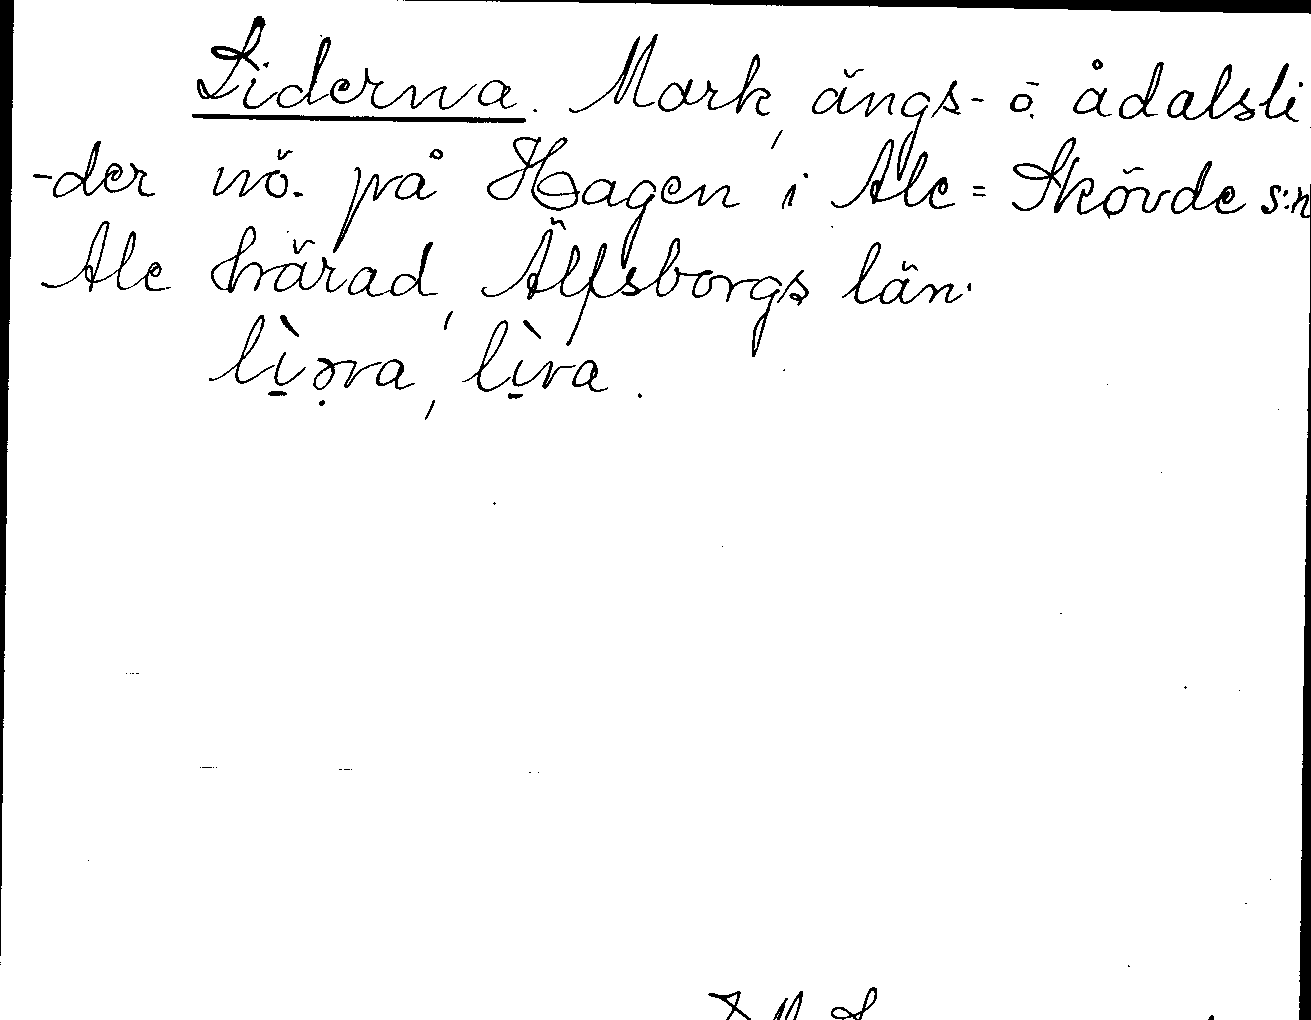 Liderna. Mark, ängs- ö. ådalsli
-der nö. på Hagen i Ale=Skövde s:n
Ale härad, Älfsborgs län.
lì̱ə̣ra, lì̱ra.